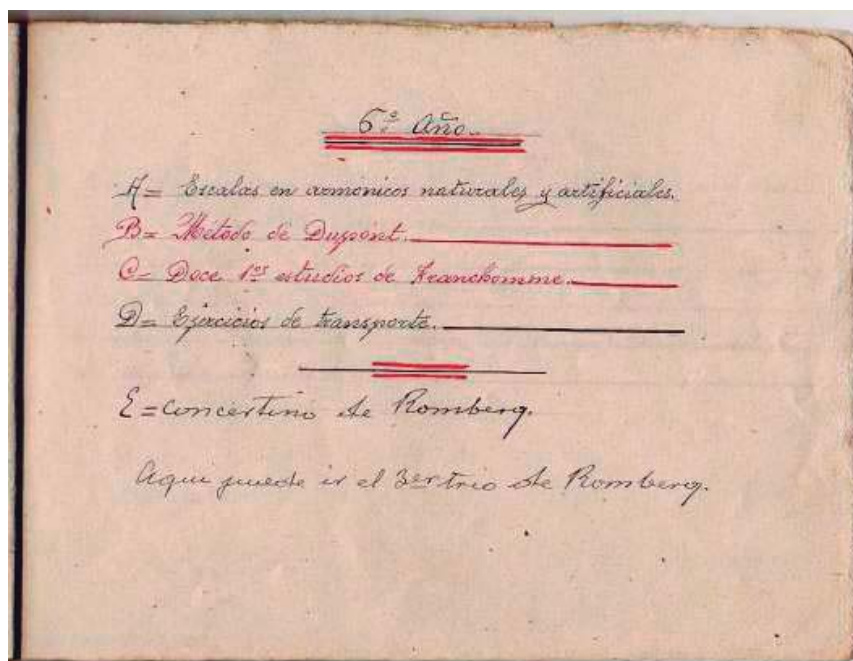 6º Año.
A= Escalas en armónicos naturales y artificiales.
B= Método de Dupont.
C= Doce 1os estudios de Franchomme.
D= Ejercicios de transporte.
E= Concertino de Romberg.
Aqui puede ir el 3er trio de Romberg.